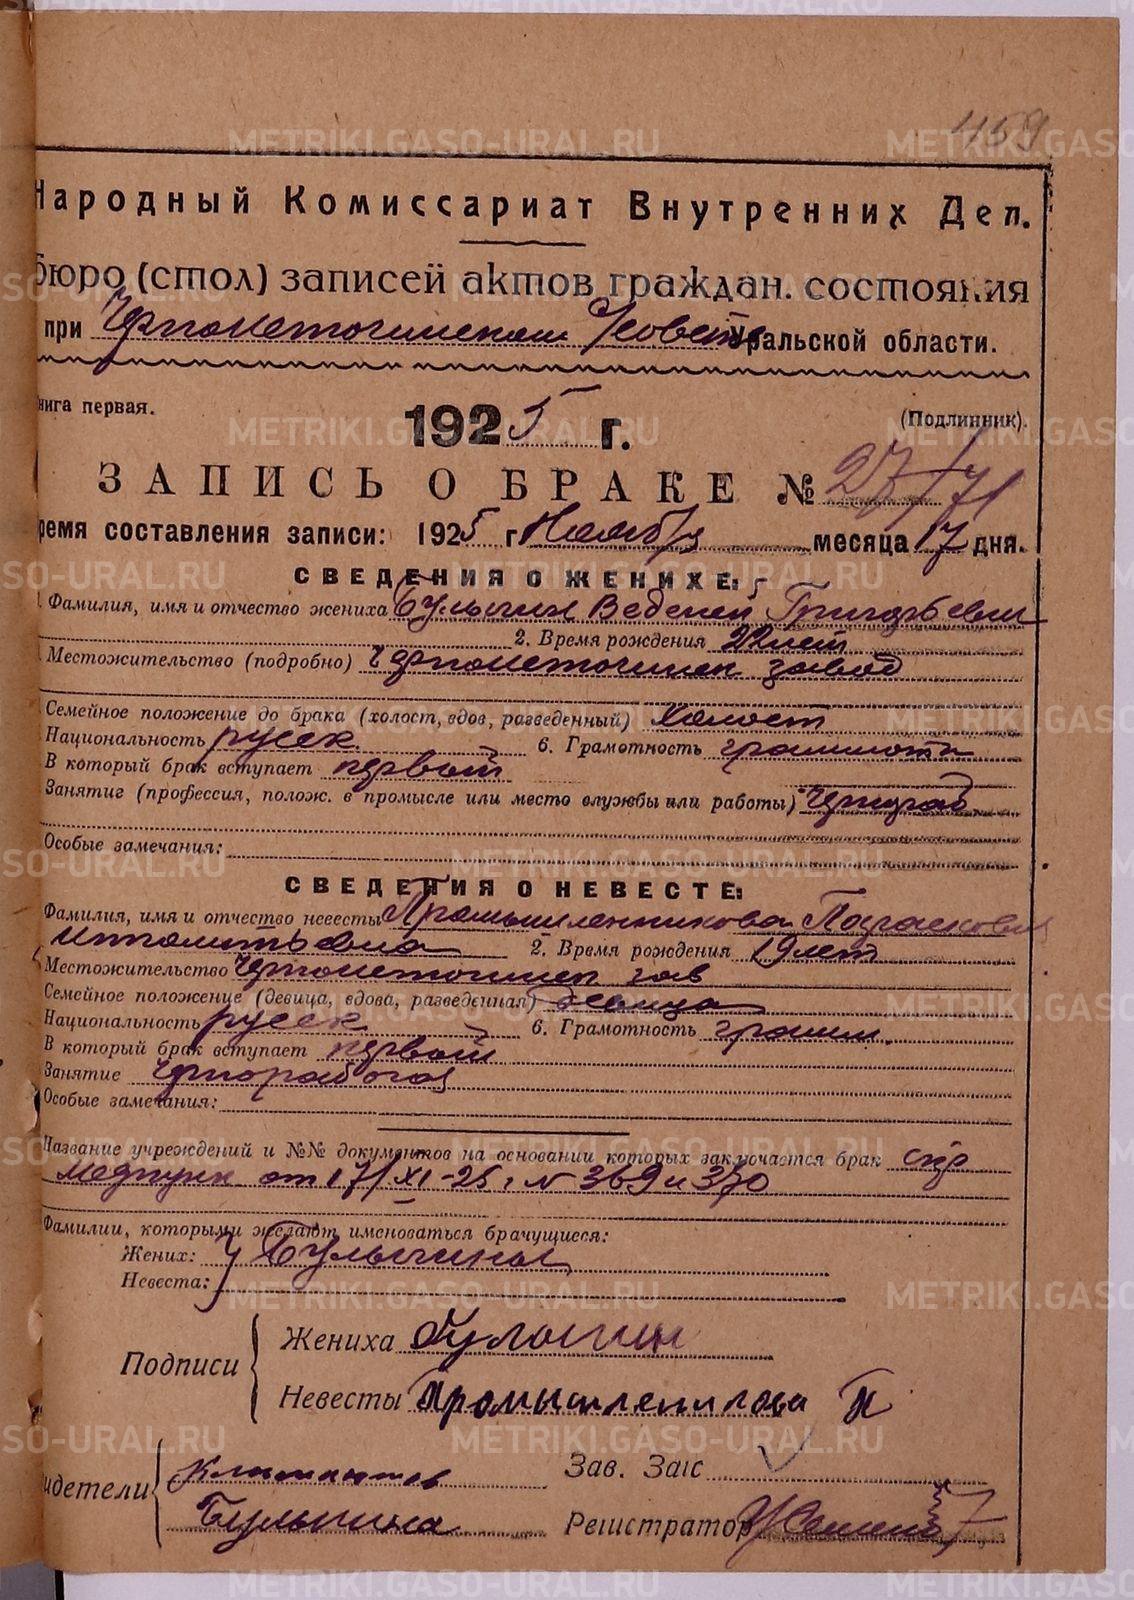 1159
Народный Комиссариат Внутренних Дел.
бюро (стол) записей актов граждан. состояния
при Черноисточинском Усовете Уральской области.
книга первая. (Подлинник).
1925 г.
ЗАПИСЬ О БРАКЕ № 27/71
ремя составления записи: 1925 г Ноября месяца 17 дня.
СВЕДЕНИЯ О ЖЕНИХЕ:
1. Фамилия, имя и отчество жениха Булычин Веденей Григорьевич
2. Время рождения 22 лет
Местожительство (подробно) Черноисточинск завод
Семейное положение до брака (холост, вдов, разведенный) холост
Национальность русск 6. Грамотность
В который брак вступает первый
Занятие (профессия, полож. в промысле или место службы или работы) Чернораб
Особые замечания:
СВЕДЕНИЯ О НЕВЕСТЕ:
Фамилия, имя и отчество невесты Промышленникова
2. Время рождения 19 лет
Местожительство Черноисточинск зав
Семейное положение (девица, вдова, разведенная) девица
Национальность русск 6. Грамотность грамотн
В который брак вступает первый
Занятие Чернорабочая
Особые замечания:
Название учреждений и №№ документов на основании которых заключается брак спр
медпунк от 17/XI-25 г № 369 и 370
Фамилии, которыми желают именоваться брачущиеся:
Жених: } Булычины
Невеста:
Подписи
Жениха Булычин
Невесты Промышленикова П
идетели Климантов Зав. Загс
Булычина Регистратор
METRIKI.GASO-URAL.RU